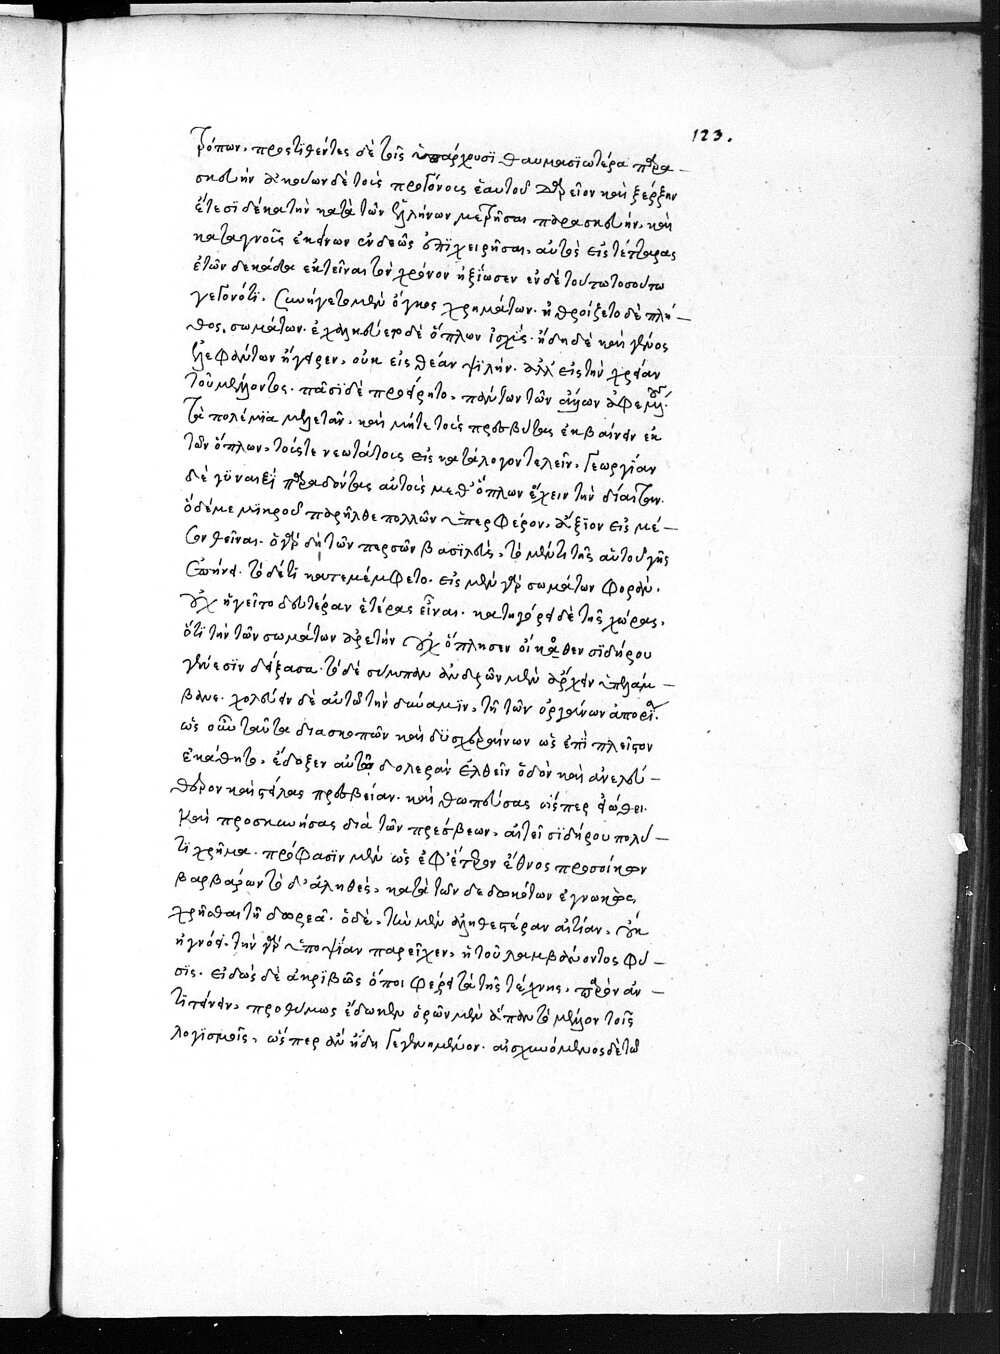 123.
τρόπων. προστιθέντες δὲ τοῖς ὑπάρχουσι θαυμασιωτέρα παρα-
σκευὴν ἀκούων δὲ τοὺς προγόνους ἑαυτοῦ Δαρεῖον καὶ Ξέρξην
ἔτεσι δέκα τὴν κατὰ τῶν ἑλλήνων μετρῆσαι παρασκευήν. καὶ
καταγνοὺς ἐκείνων ἐνδεῶς ἐπιχειρῆσαι, αὐτὸς εἰς τέτταρας
ἐτῶν δεκάδα ἐκτεῖναι τὸν χρόνον ἠξίωσεν ἐν δὲ τούτω τοσούτω
γεγονότι. συνήγετο μὲν ὄγκος χρημάτων. ἠθροίζετο δὲ πλῆ-
θος σωμάτων. ἐχαλκεύετο δὲ ὅπλων ἰσχύς. ἤδη δὲ καὶ γένος
ἐλεφάντων ἤγειρεν, οὐκ εἰς θέαν ψιλήν. ἀλλ' εἰς τὴν χρείαν
τοῦ μέλλοντος. πᾶσι δὲ προείρητο. πάντων τῶν ἄλλων ἀφεμένους.
τὰ πολέμια μελετᾶν. καὶ μήτε τοὺς πρεσβύτας ἐκβαίνειν ἐκ
τῶν ὅπλων, τούς τε νεωτάτους εἰς κατάλογον τελεῖν, γεωργίαν
δὲ γυναιξὶ παραδόντας αὐτοὺς μεθ' ὅπλων ἔχειν τὴν δίαιταν.
ὃ δέ με μικροῦ παρῆλθε πολλῶν ὑπερφέρον, ἄξιον εἰς μέ-
σον θεῖναι. ὁ γὰρ δὴ τῶν περσῶν βασιλεὺς, τὸ μέν τι τῆς αὑτοῦ γῆς
ἐπήνει. τὸ δέ τι κατεμέμφετο. εἰς μὲν γὰρ σωμάτων φορὰν.
οὐχ ἡγεῖτο δευτέραν ἑτέρας εἶναι. κατηγόρει δὲ τῆς χώρας,
ὅτι τὴν τῶν σωμάτων ἀρετὴν οὐχ ὥπλησεν οἴκοθεν σιδήρου
γένεσιν δείξασα. τὸ δὲ σύμπαν ἀνδρῶν μὲν ἄρχειν ὑπελάμ-
βανε. χωλεύειν δὲ αὐτῶ τὴν δύναμιν, τῆ τῶν ὀργάνων ἀπορία.
ὡς οὖν ταῦτα διασκοπῶν καὶ δυσχεραίνων ὡς ἐπὶ πλεῖστον
ἐκάθητο, ἔδοξεν αὐτῶ δολερὰν ἐλθεῖν ὁδὸν καὶ ἀνελεύ-
θερον καὶ στείλας πρεσβείαν. καὶ θωπεύσας ὥσπερ εἰώθει.
καὶ προσκυνήσας διὰ τῶν πρέσβεων, αἰτεῖ σιδήρου πολύ-
τι χρῆμα. πρόφασιν μὲν ὡς ἐφ' ἕτερον ἔθνος προσοίκων
βαρβάρων τὸ δ' ἀληθές, κατὰ τῶν δεδωκότων ἐγνωκὼς,
χρῆσθαι τῆ δωρεᾶ. ὁ δέ, τὴν μὲν ἀληθεστέραν αἰτίαν. οὐκ
ἠγνόει. τὴν γὰρ ὑποψίαν παρεῖχεν, ἡ τοῦ λαμβάνοντος φύ-
σις. εἰδὼς δὲ ἀκριβῶς ὅποι φέρει τὰ τῆς τέχνης, παρὸν ἀν-
τιπείνειν, προθύμως ἔδωκεν ὁρῶν μὲν ἅπαν τὸ μέλλον τοῖς
λογισμοῖς, ὥσπερ ἂν ἤδη γεγενημένον. αἰσχυνόμενος δὲ τῶ